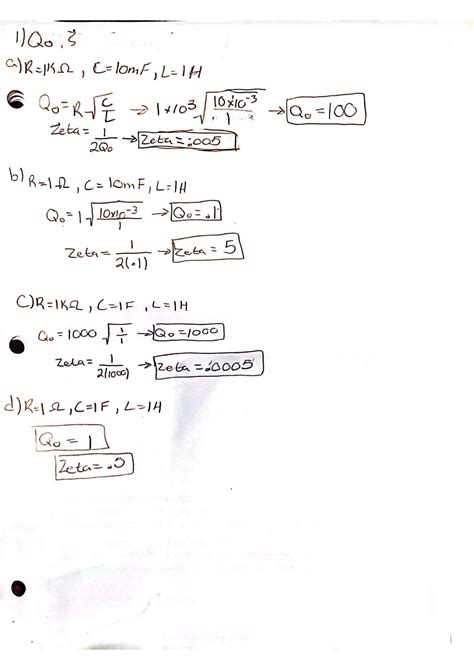 1) Q₀, ζ
a) R=1KΩ, C=10mF, L=1H
Q₀=R√(C/L) → 1×10³√(10×10⁻³/1) → Q₀=100
Zeta=1/2Q₀ → Zeta=.005
b) R=1Ω, C=10mF, L=1H
Q₀=1√(10×10⁻³/1) → Q₀=.1
Zeta=1/2(.1) → Zeta=5
C) R=1KΩ, C=1F, L=1H
Q₀=1000√(1/1) → Q₀=1000
Zeta=1/2(1000) → Zeta=.0005
d) R=1Ω, C=1F, L=1H
Q₀=1
Zeta=.5